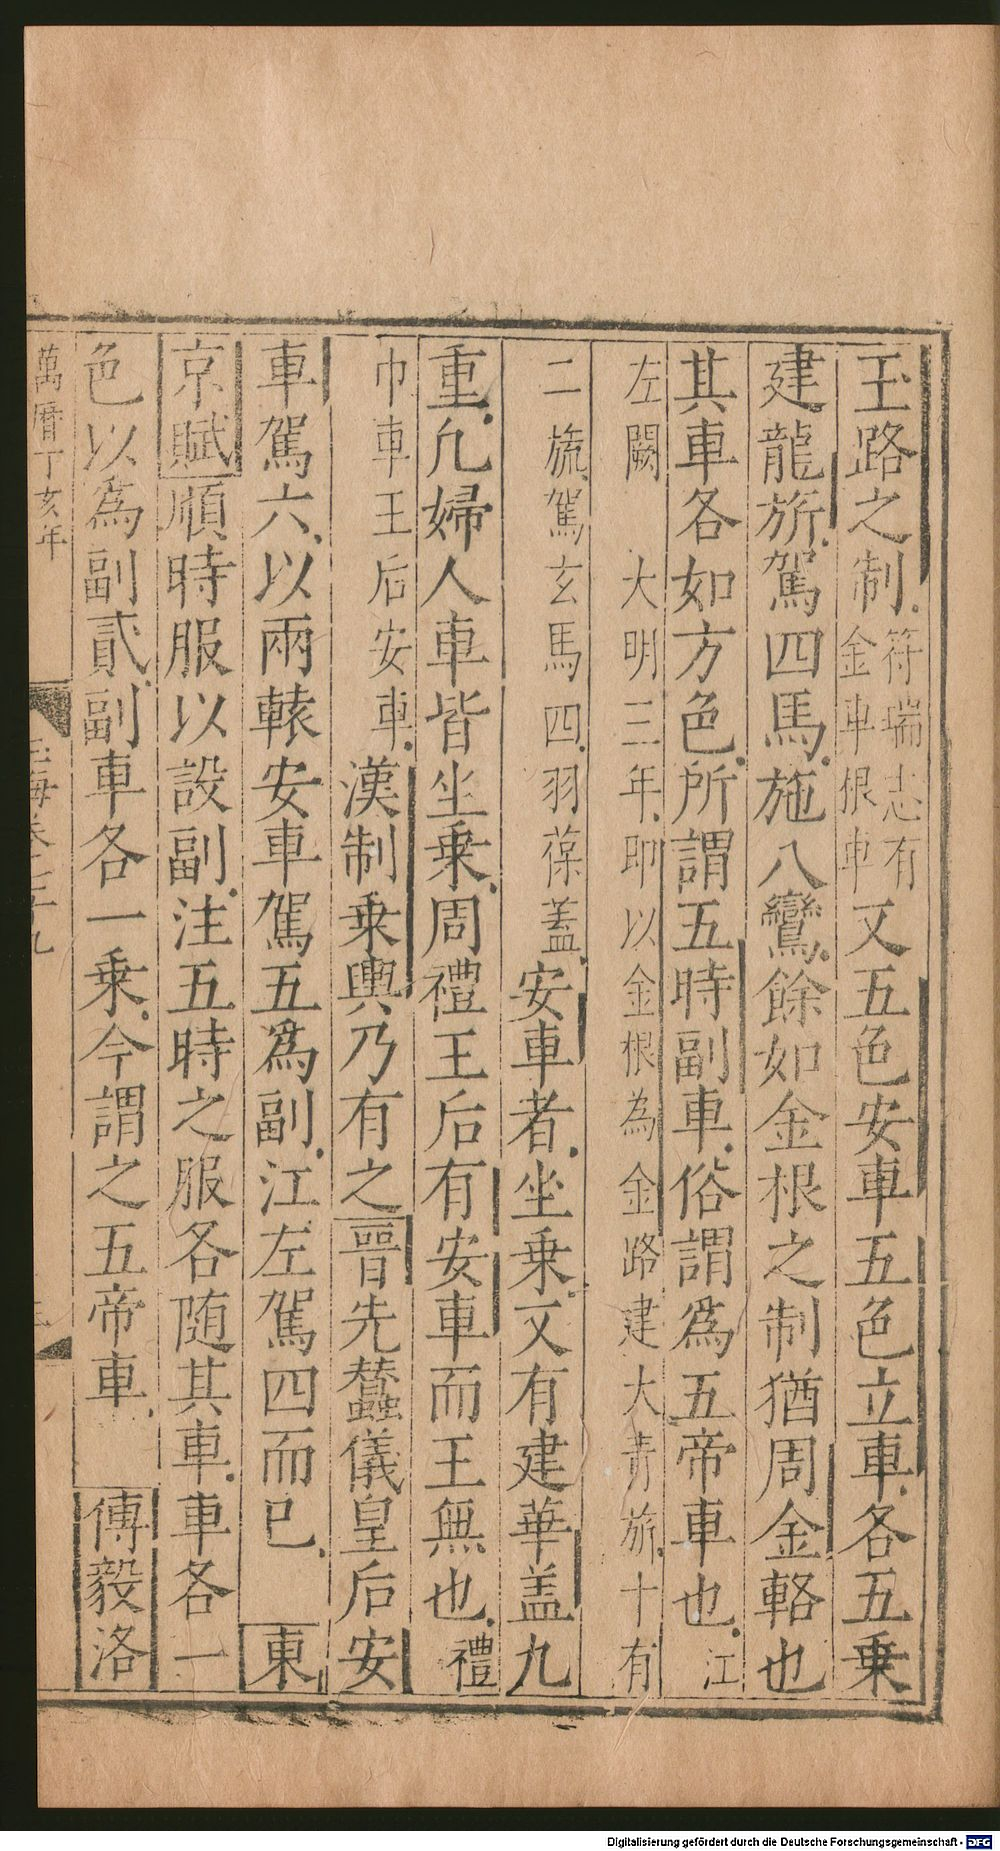 玉路之制符瑞志有金車根車又五色安車五色立車各五乗
建龍旂駕四馬施八鸞餘如金根之制猶周金輅也
其車各如方色所謂五時副車俗謂爲五帝車也江
左闕大明三年即以金根為金路建大青旂十有
二旒駕玄馬四羽葆蓋安車者坐乗又有建華盖九
重凢婦人車皆坐乗周禮王后有安車而王無也禮
巾車王后安車漢制乗輿乃有之晉先蠶儀皇后安
車駕六以兩轅安車駕五爲副江左駕四而已東
京賦順時服以設副注五時之服各随其車車各一
色以爲副貳副車各一乗今謂之五帝車傅毅洛
萬曆丁亥年
玉海卷七十九
Digitalisierung gefördert durch die Deutsche Forschungsgemeinschaft - DFG